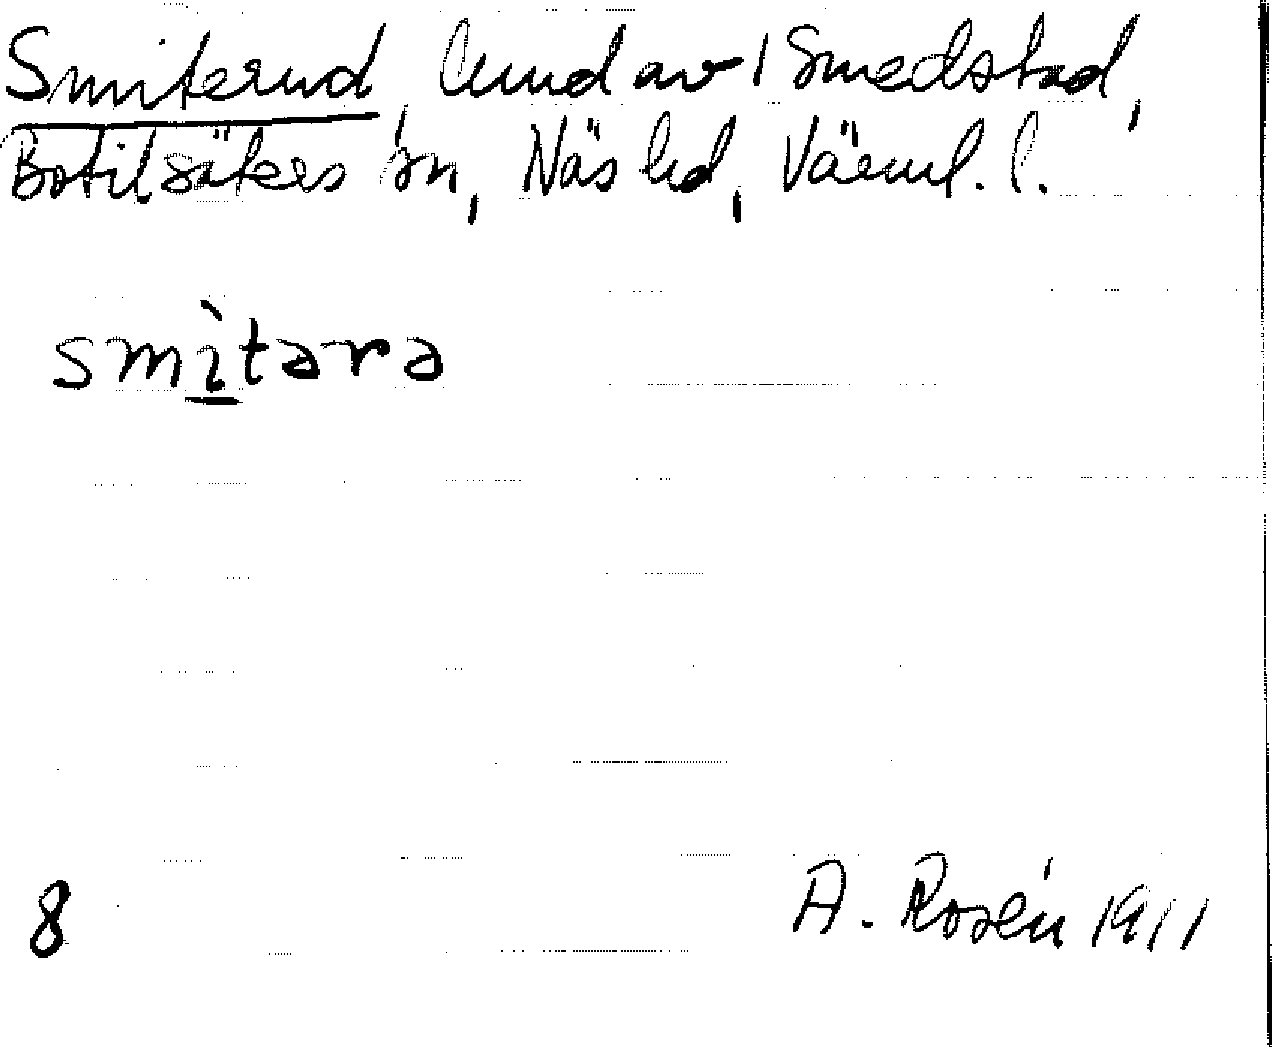 Smiterud, lund av 1 Smedstad,
Botilsäkers sn, Näs hd, Värml. l.
smìtərə
8
A. Rosén 1911